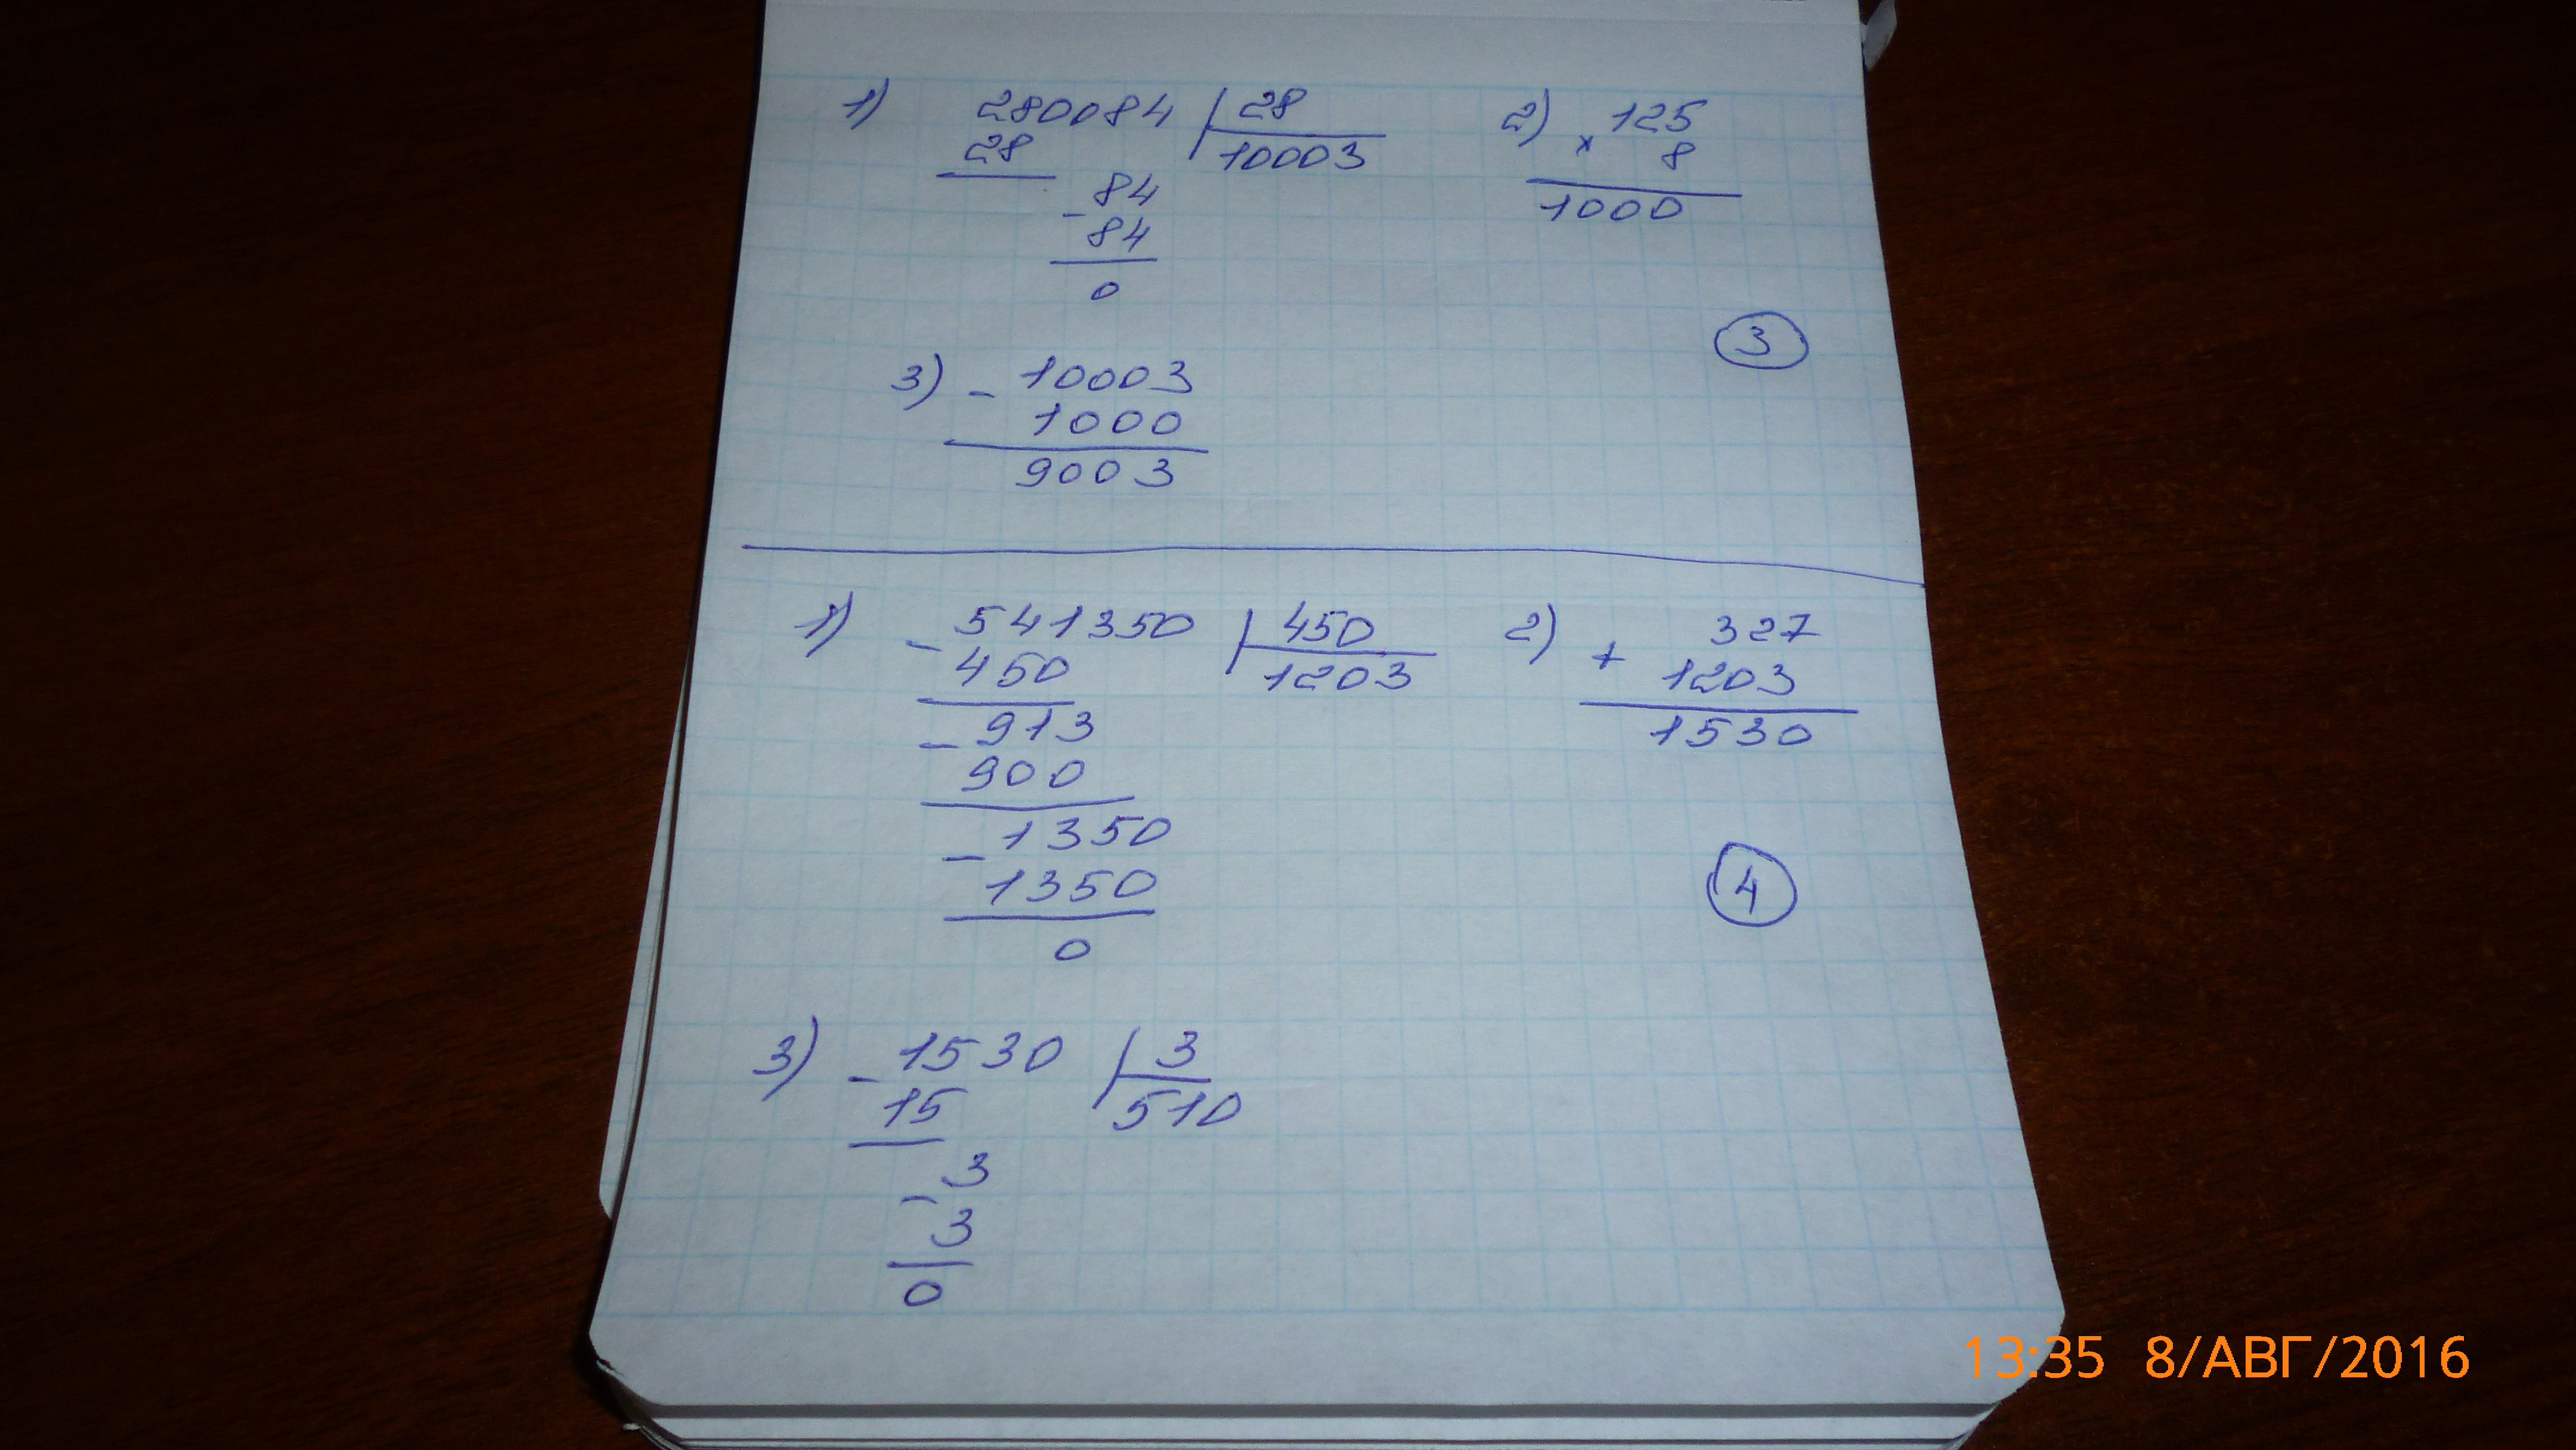 1) 280084 28 2) 125
28 10003 × 8
84 1000
- 84
0
3
3) - 10003
1000
9003
1) - 541350 450 2) 327
450 1203 + 1203
913 1530
- 900
1350
- 1350 4
0
3) - 1530 3
15 510
- 3
3
0
13:35 8/АВГ/2016